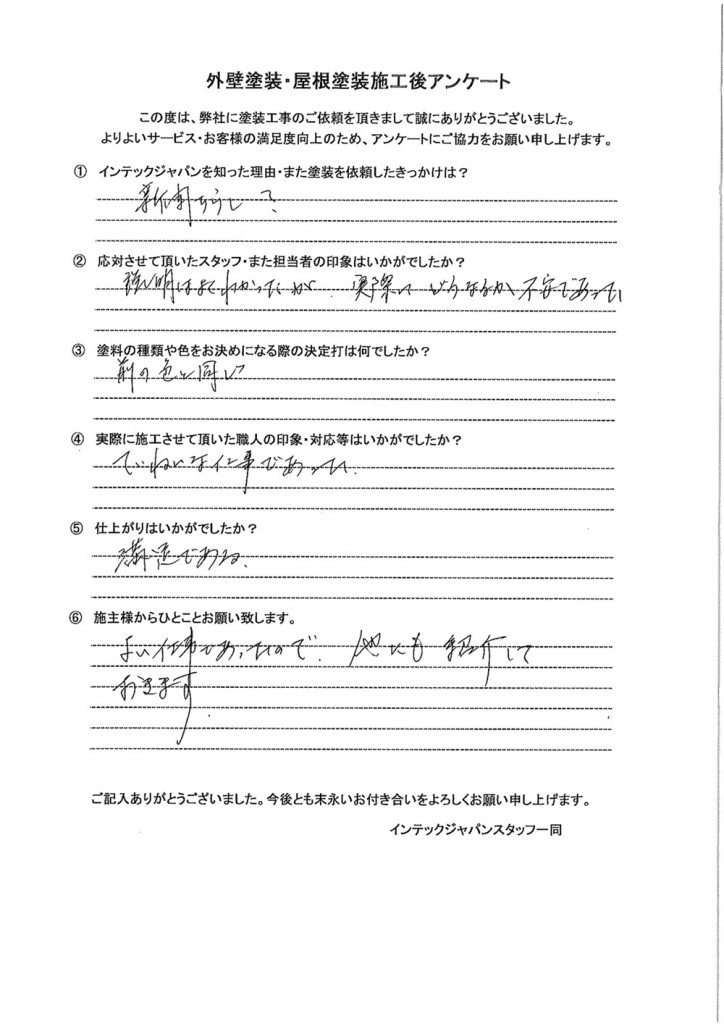 外壁塗装・屋根塗装施工後アンケート
この度は、弊社に塗装工事のご依頼を頂きまして誠にありがとうございました。
よりよいサービス・お客様の満足度向上のため、アンケートにご協力をお願い申し上げます。
① インテックジャパンを知った理由・また塗装を依頼したきっかけは？
新聞ちらし？
② 応対させて頂いたスタッフ・また担当者の印象はいかがでしたか？
説明はよくわかったが、実際にどうなるか不安であった
③ 塗料の種類や色をお決めになる際の決定打は何でしたか？
前の色と同じ
④ 実際に施工させて頂いた職人の印象・対応等はいかがでしたか？
ていねいな仕事であった。
⑤ 仕上がりはいかがでしたか？
満足である。
⑥ 施主様からひとことお願い致します。
よい仕事であったので、他にも紹介して
おきます。
ご記入ありがとうございました。今後とも末永いお付き合いをよろしくお願い申し上げます。
インテックジャパンスタッフ一同